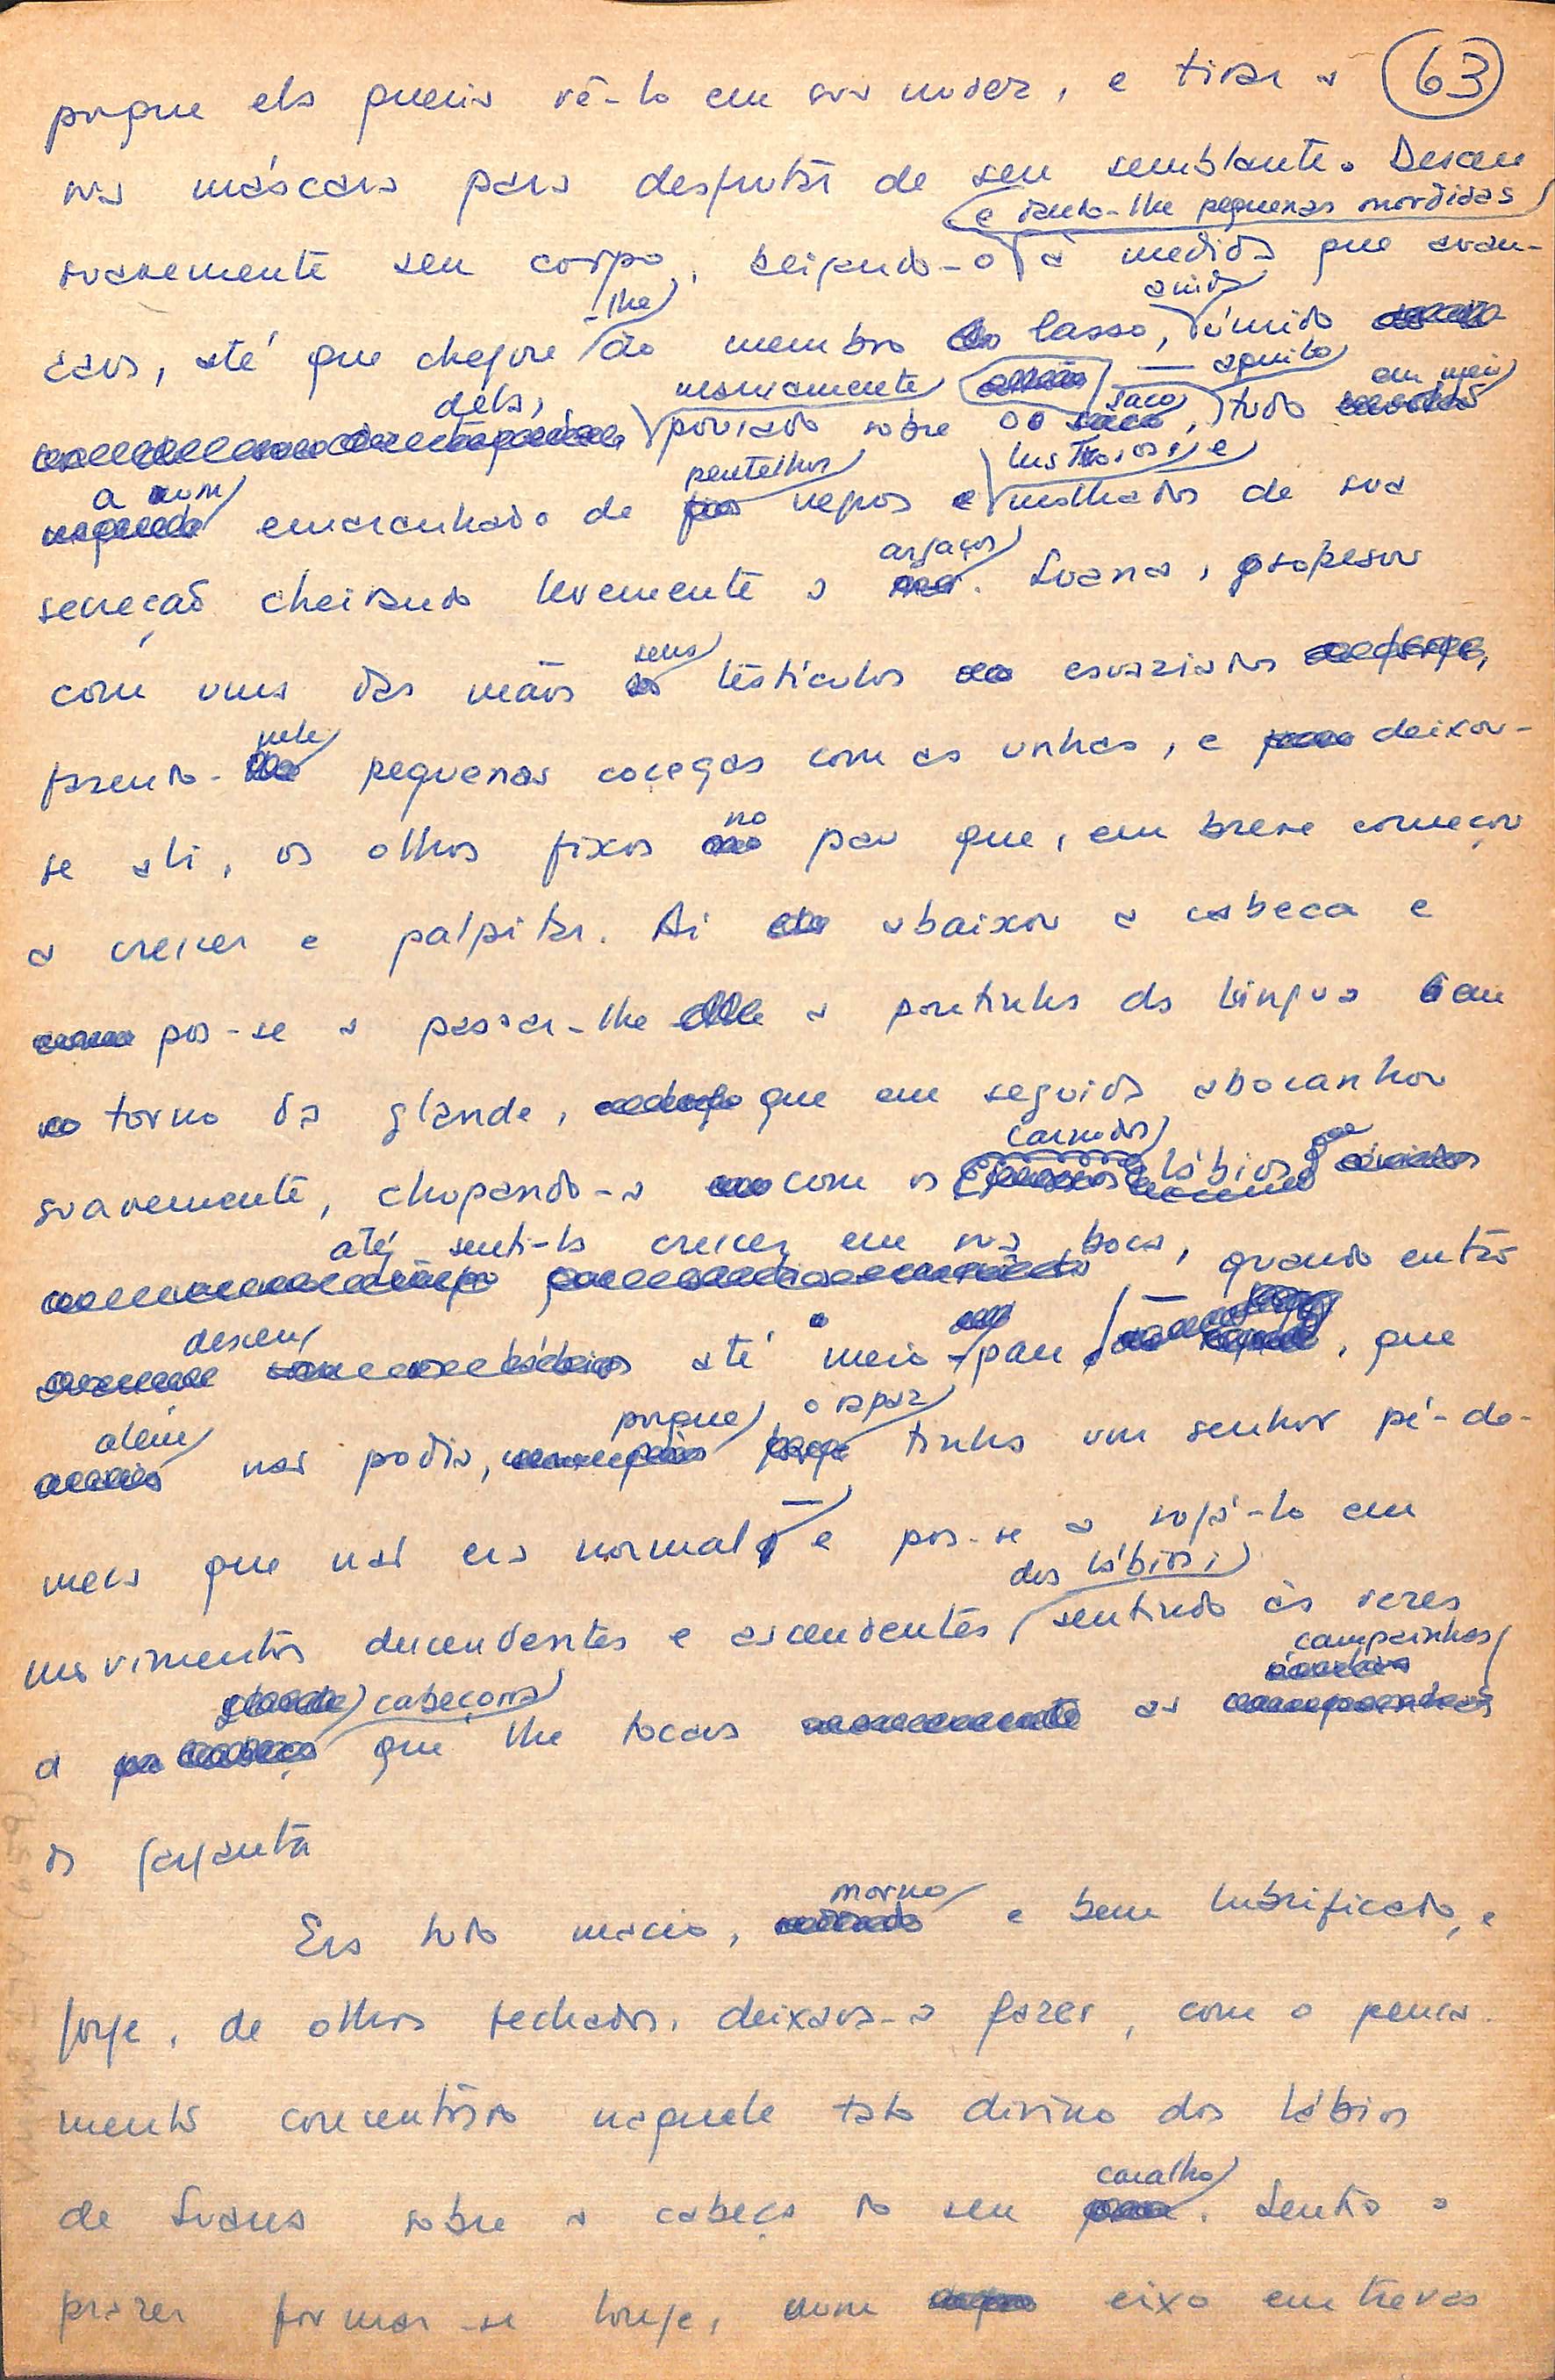 porque ela queria vê-lo em sua nudez, e tirar a (63)
sua máscara para desfrutar de seu semblante. Desceu
e dando-lhe pequenas mordidas
suavemente seu corpo, beijando-o à medida que avan-
-lhe ainda
çava, até que chegou ao membro lasso, úmido
dela, mansamente — aquilo em meio
pousado sobre o saco, tudo
a num pentelhos lustrosos, e
emaranhado de negos e molhados de sua
argaços
secreção cheirando levemente a . Luana, sopesou
seus
com uma das mãos testículos esvaziados
nele
fazendo- pequenas cocegas com as unhas, e deixou-
no
se ali, os olhos fixos pau que, em breve começou
a crescer e palpitar. Aí abaixou a cabeca e
pos-se a passar-lhe a pontinha da língua em
torno da glande, que em seguida abocanhou
carnudos
suavemente, chupando-a com os lábios
até senti-la crescer em sua boca, quando então
desceu
até o meio pau, que
além porque o rapaz
não podia, tinha um senhor pé-de-
—
mesa que não era normal e pos-se a sugá-lo em
dos lábios,
movimentos descendentes e ascendentes sentindo às vezes
campainhas
cabeçorra
a que lhe tocava as
da garganta
morno
Era tudo macio, e bem lubrificado, e
Jorge, de olhos fechados, deixava-a fazer, com o pensa-
mento concentrado naquele tato divino dos lábios
caralho
de Luana sobre a cabeça do seu . Sentia o
prazer formar-se longe, num eixo em trevas